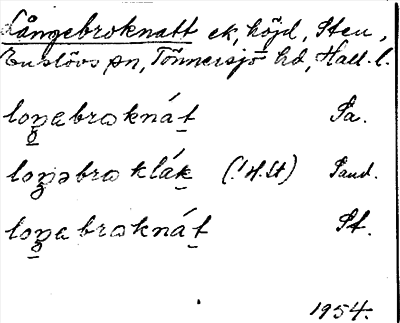 Långebroknatt ek, höjd, Sten,
Enslövs sn, Tönnersjö hd, Hall. l.
loŋabroknát Sa.
loŋəbroklák (! H. St) Sand.
loŋabroknát St.
1954.